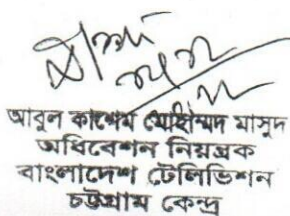 আবুল কাশেম মোহাম্মদ মাসুদ
অধিবেশন নিয়ন্ত্রক
বাংলাদেশ টেলিভিশন
চট্টগ্রাম কেন্দ্র